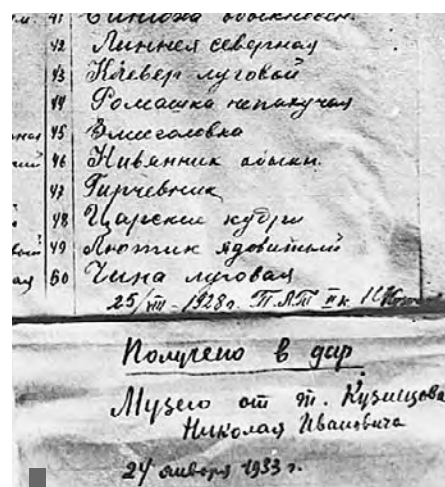 41 Синюха обыкновен.
42 Линнея северная
43 Клевер луговой
44 Ромашка непахучая
45 Змееголовка
46 Нивянник обыкн.
47 Гирчевник
48 Царские кудри
49 Лютик ядовитый
50 Чина луговая
25/VIII - 1928 г. П.Л.Т II к.
Получено в дар
Музею от т. Кузнецова
Николая Ивановича
24 января 1933 г.